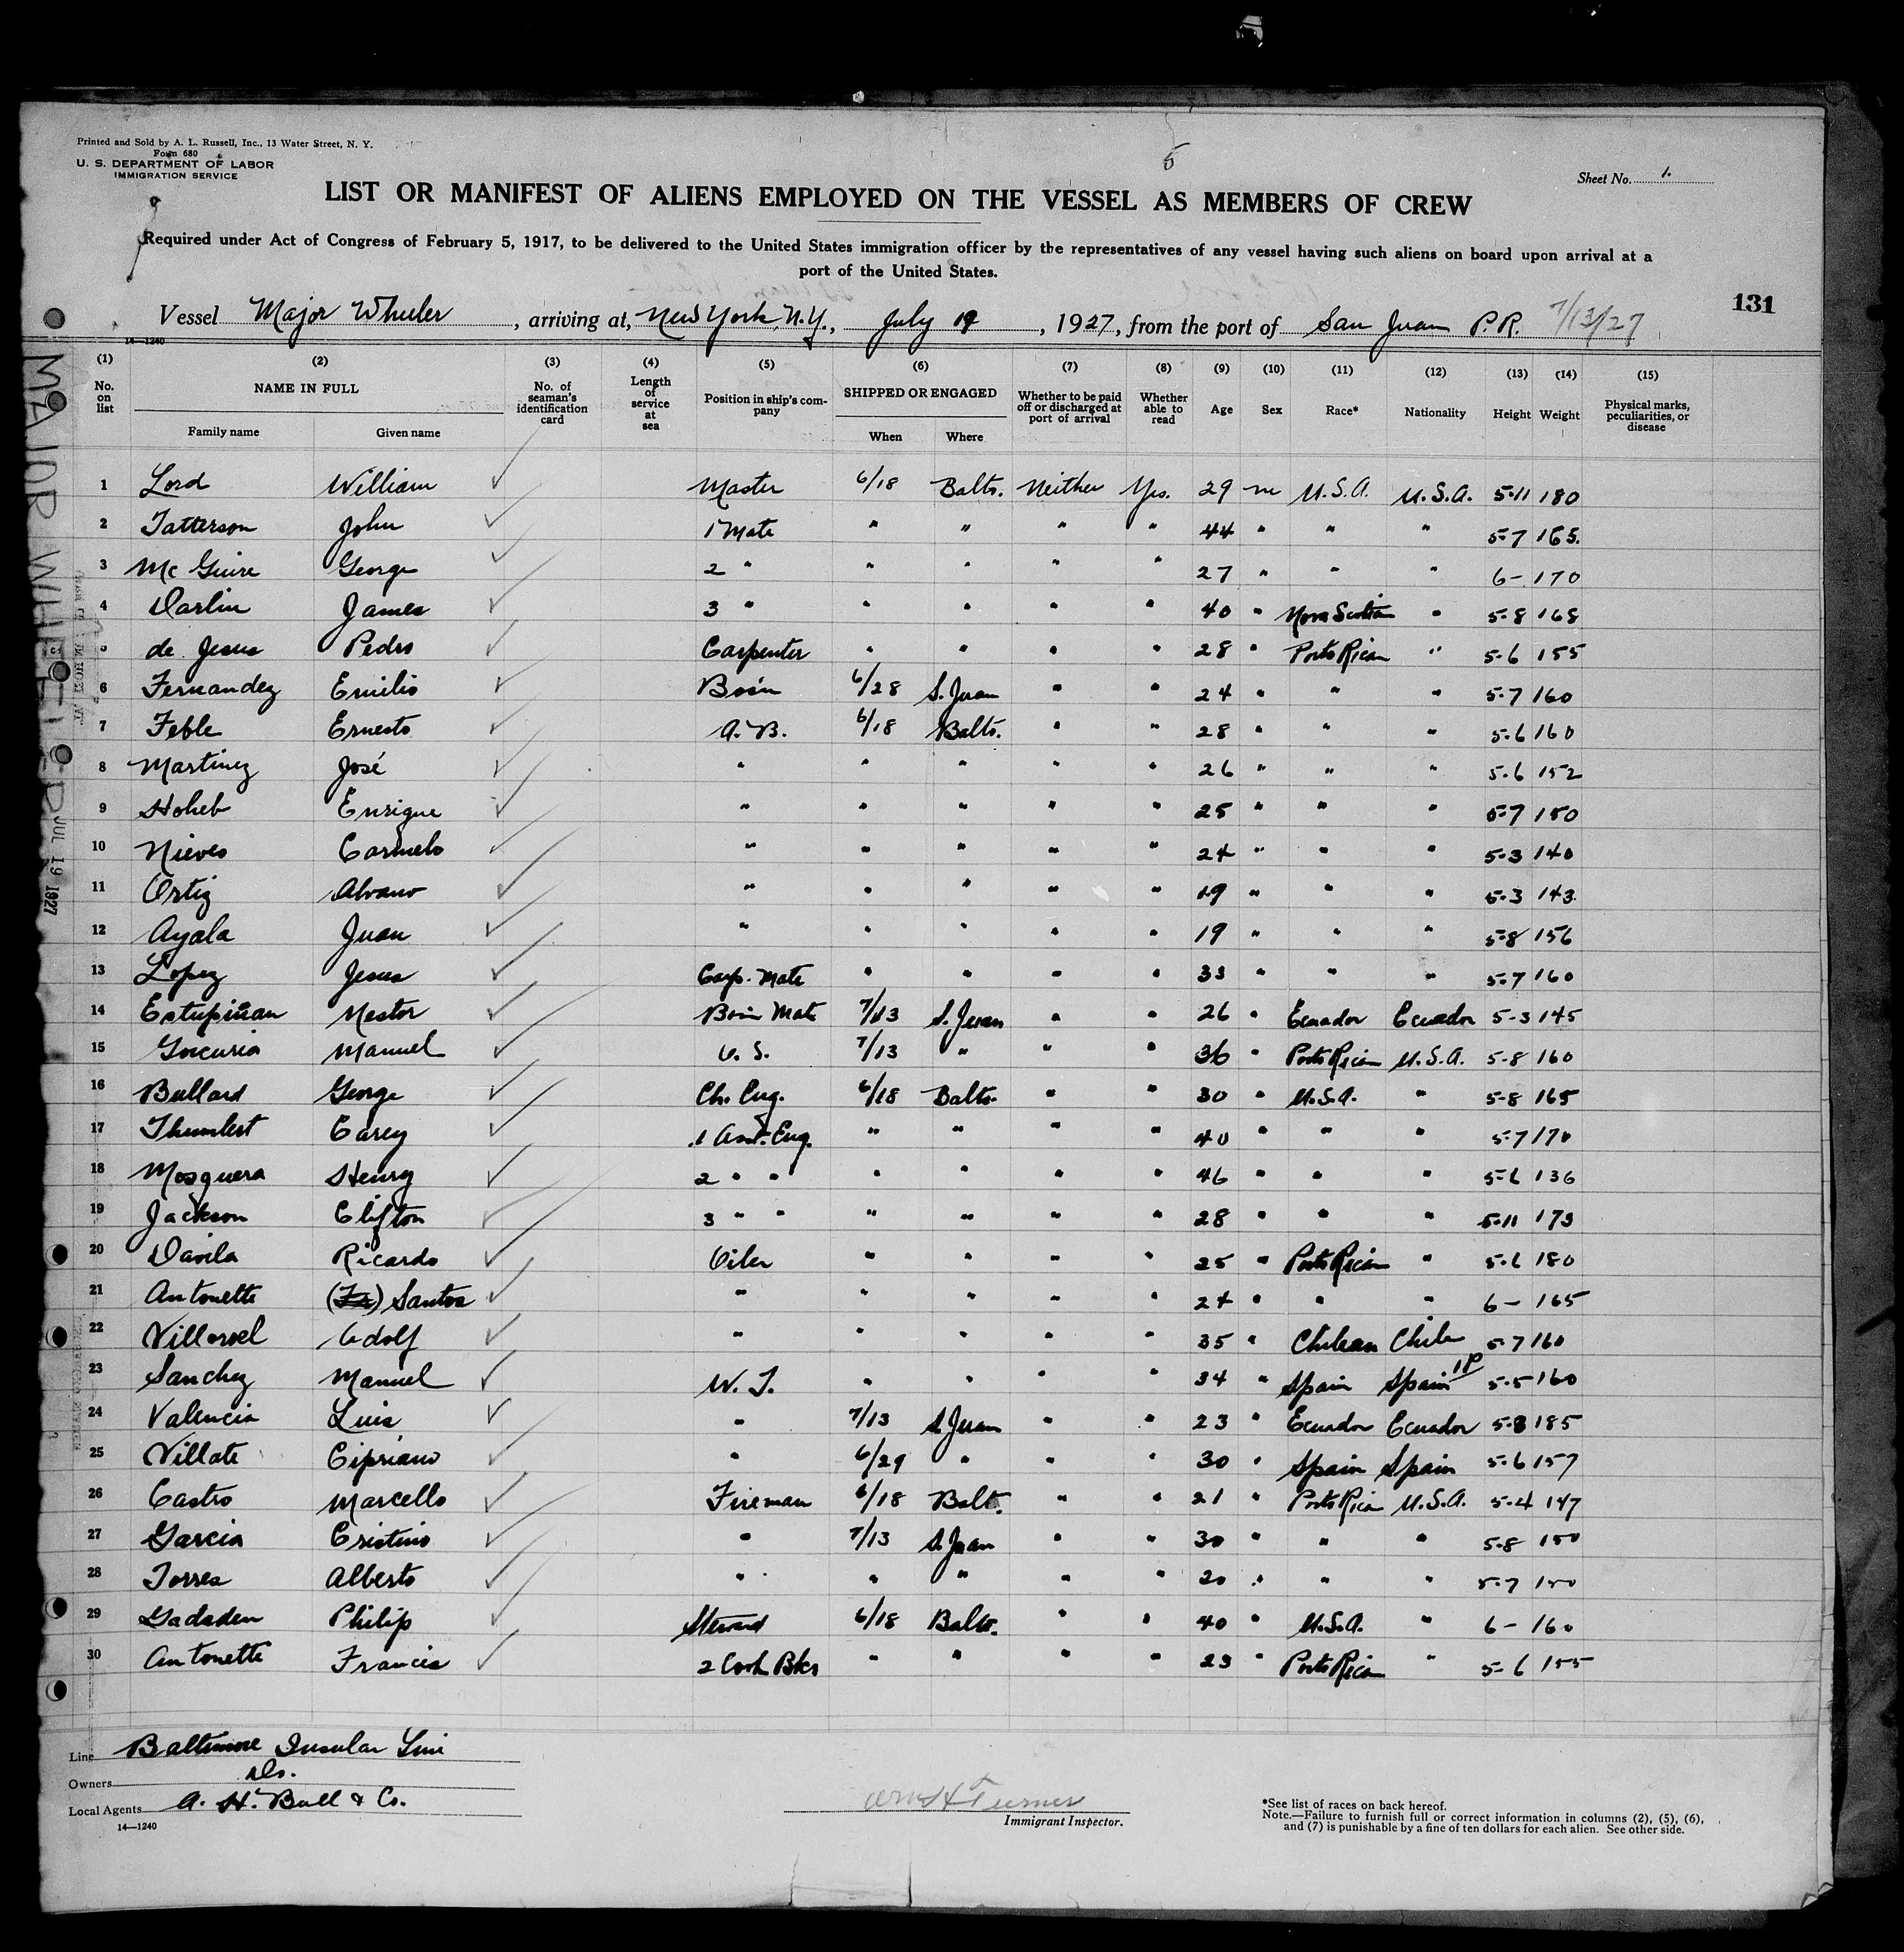 Printed and Sold by A. L. Russell, Inc., 13 Water Street, N. Y.
Form 680
U. S. DEPARTMENT OF LABOR
IMMIGRATION SERVICE
5
Sheet No. 1.
LIST OR MANIFEST OF ALIENS EMPLOYED ON THE VESSEL AS MEMBERS OF CREW
Required under Act of Congress of February 5, 1917, to be delivered to the United States immigration officer by the representatives of any vessel having such aliens on board upon arrival at a
port of the United States.
131
Vessel Major Wheeler, arriving at, New York, N.Y., July 19, 1927, from the port of San Juan P.R. 7/13/27
14—1240
(1) (2) (3) (4) (5) (6) (7) (8) (9) (10) (11) (12) (13) (14) (15)
No. on list NAME IN FULL Family name Given name No. of seaman's identification card Length of service at sea Position in ship's company SHIPPED OR ENGAGED When Where Whether to be paid off or discharged at port of arrival Whether able to read Age Sex Race* Nationality Height Weight Physical marks, peculiarities, or disease
1 Lord William Master 6/18 Balto. Neither Yes. 29 m U.S.A. U.S.A. 5-11 180
2 Tatterson John 1 Mate " " " " 44 " " " 5-7 165.
3 McGuire George 2 " " " " " 27 " " " 6- 170
4 Darlin James 3 " " " " " 40 " Nova Scotian " 5-8 168
5 de Jesus Pedro Carpenter " " " " 28 " Porto Rican " 5-6 155
6 Fernandez Emilio Bos'n 6/28 S. Juan " " 24 " " " 5-7 160
7 Feble Ernesto A.B. 6/18 Balto. " " 28 " " " 5-6 160
8 Martinez José " " " " " 26 " " " 5-6 152
9 Hoheb Enrique " " " " " 25 " " " 5-7 150
10 Nieves Carmelo " " " " " 24 " " " 5-3 140
11 Ortiz Alvaro " " " " " 19 " " " 5-3 143
12 Ayala Juan " " " " " 19 " " " 5-8 156
13 Lopez Jesus Carp. Mate " " " " 33 " " " 5-7 160
14 Estupiñan Nestor Bosn Mate 7/13 S. Juan " " 26 " Ecuador Ecuador 5-3 145
15 Goicuria Manuel O.S. 7/13 " " " 36 " Porto Rican U.S.A. 5-8 160
16 Bullard George Ch. Eng. 6/18 Balto. " " 30 " U.S.A. " 5-8 165
17 Thumlert Carey 1 Asst. Eng. " " " " 40 " " " 5-7 170
18 Mosquera Henry 2 " " " " " " 46 " " " 5-6 136
19 Jackson Clifton 3 " " " " " " 28 " " " 5-11 173
20 Davila Ricardo Oiler " " " " 25 " Porto Rican " 5-6 180
21 Antonette (Fr) Santos " " " " " 24 " " " 6- 165
22 Villaroel Adolf " " " " " 35 " Chilean Chile 5-7 160
23 Sanchez Manuel W.T. " " " " 34 " Spain Spain IP 5-5 160
24 Valencia Luis " 7/13 S. Juan " " 23 " Ecuador Ecuador 5-8 185
25 Villate Cipriano " 6/29 " " " 30 " Spain Spain 5-6 157
26 Castro Marcello Fireman 6/18 Balt. " " 21 " Porto Rican U.S.A. 5-4 147
27 Garcia Cristino " 7/13 S. Juan " " 30 " " " 5-8 150
28 Torres Alberto " " " " " 20 " " " 5-7 150
29 Gadsden Philip Steward 6/18 Balto. " " 40 " U.S.A. " 6- 160
30 Antonette Francis 2 Cook Bker " " " " 23 " Porto Rican " 5-6 155
MAJOR WHEELER
JUL 19 1927
Line Baltimore Insular Line
Owners Do.
Local Agents A. H. Bull & Co.
14—1240
Turner
Immigrant Inspector.
*See list of races on back hereof.
Note.—Failure to furnish full or correct information in columns (2), (5), (6),
and (7) is punishable by a fine of ten dollars for each alien. See other side.